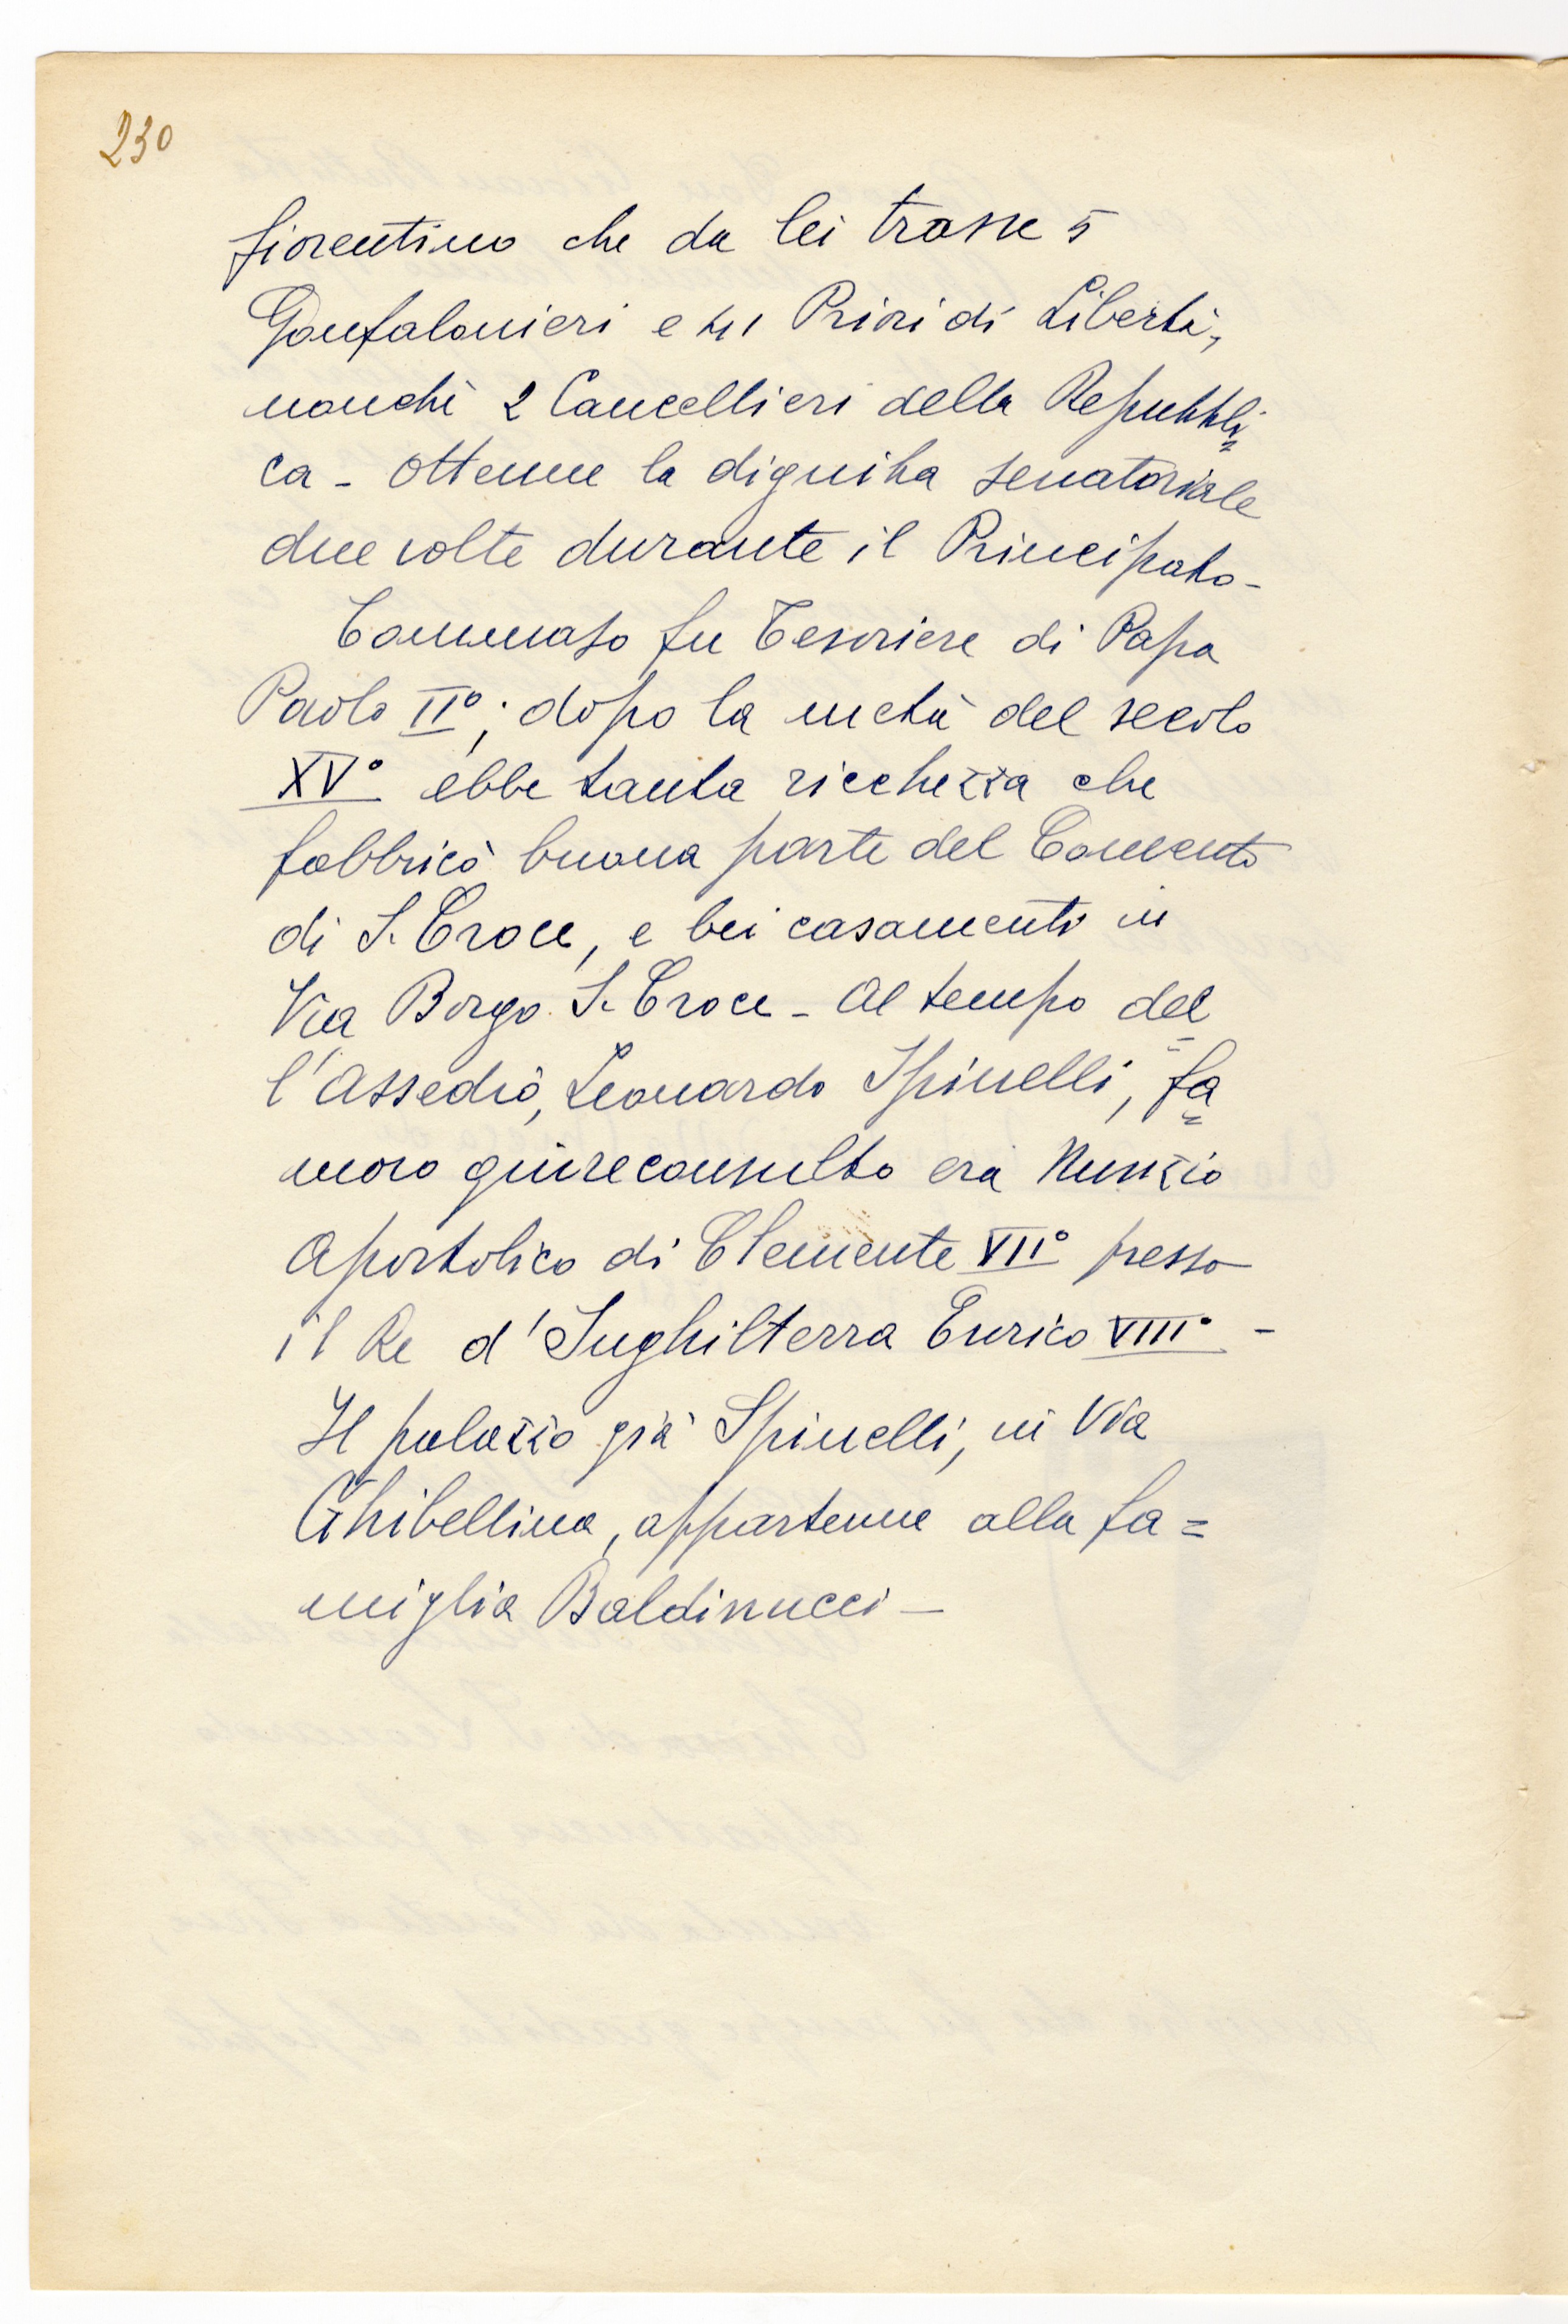 230
fiorentino che da lei trasse 5
Gonfalonieri e 41 Priori di Libertà,
nonchè 2 Cancellieri della Repubbli=
ca - Ottenne la dignità senatoriale
due volte durante il Principato -
Tommaso fu Tesoriere di Papa
Paolo II°; dopo la metà del secolo
XV° ebbe tanta ricchezza che
fabbricò buona parte del Convento
di S. Croce, e bei casamenti in
Via Borgo S. Croce - Al tempo del=
l'Assedio, Leonardo Spinelli, fa=
moso giureconsulto era Nunzio
Apostolico di Clemente VII° presso
il Re d'Inghilterra Enrico VIII° -
Il palazzo già Spinelli, in Via
Ghibellina, appartenne alla fa=
miglia Baldinucci -